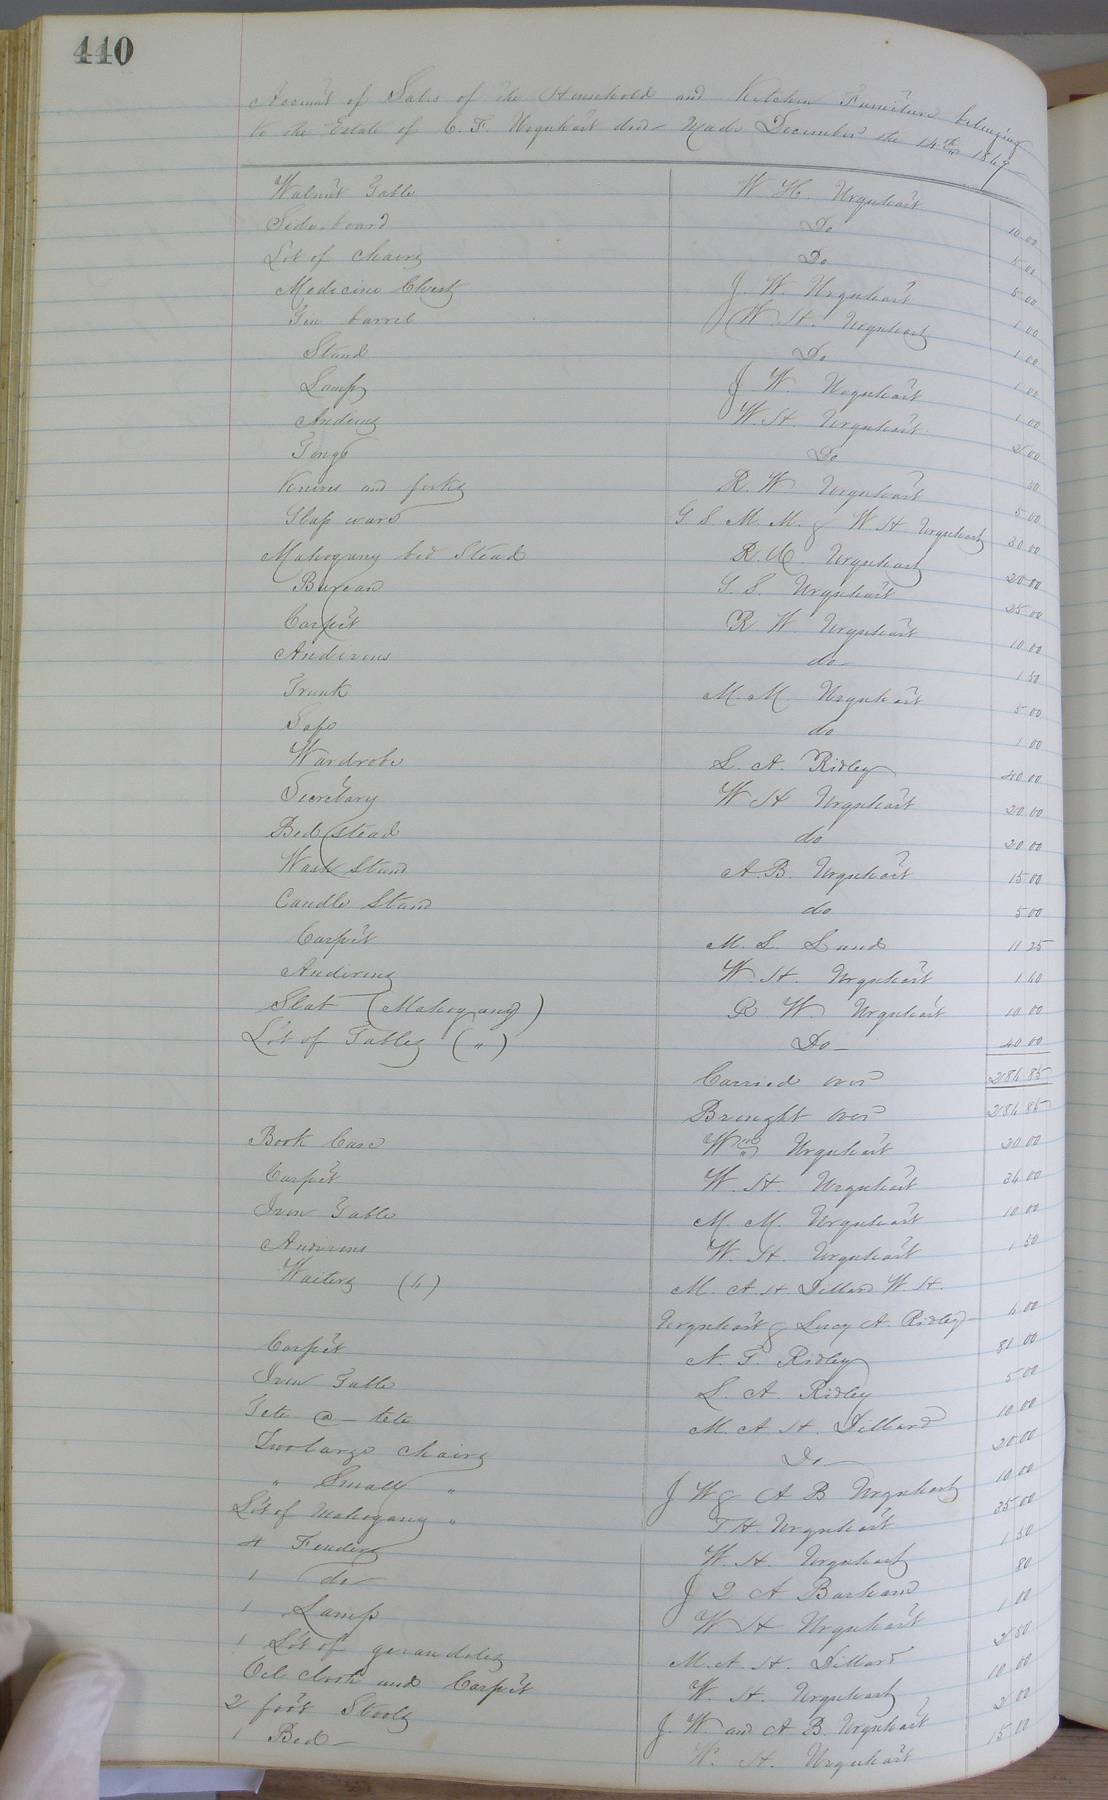 440
Account of Sales of the Household and Kitchen Furniture belonging
to the Estate of C. F. Urquhart decd Made December the 14th 1869
Walnut Table W H. Urquhart 10 00
Side-board Do 5 00
Lot of Chairs Do 5 00
Medicine Chest J. W Urquhart 1 00
Tin barrel W. H. Urquhart 1 00
Stand Do 1 00
Lamp J W. Urquhart 1 00
Andirons W. H. Urquhart 2 00
Tongs Do 50
Knives and forks R. W Urquhart 5 00
Glass ware G S. M. M. & W H Urquhart 30 00
Mahogany bed Stead R. W. Urquhart 20 00
Bureau G. S. Urquhart 25 00
Carpet R W Urquhart 10 00
Andirons do 1 50
Trunk M. M Urquhart 5 00
Safe do 1 00
Wardrobe L. A. Ridley 40 00
Secretary W H Urquhart 20 00
Bed stead do 20 00
Wash Stand A. B. Urquhart 15 00
Candle Stand do 5 00
Carpet M. L. Lund 11 25
Andirons W. H. Urquhart 1 60
Slat (Mahogany) R W. Urquhart 10 00
Lot of Tables (") Do 40 00
Carried over 286 85
Brought over 286 85
Book Case Wm Urquhart 20 00
Carpet W. H. Urquhart 36 00
Iron Table M. M. Urquhart 10 00
Andirons W. H. Urquhart 1 50
Waiters (4) M. A. H Dillard W. H.
Urquhart & Lucy A. Ridley 6 00
Carpet N. T Ridley 81 00
Iron Table L. A. Ridley 5 00
Tete @ tete M. A. H. Dillard 10 00
Two large Chairs Do 20 00
" Small " J W & A B Urquhart 10 00
Lot of Mahogany " T H Urquhart 35 00
4 Fenders W. H. Urquhart 1 50
1 do J Q A Barham 80
1 Lamp W H Urquhart 1 00
1 Lot of girandoles M. A. H. Dillard 2 50
Oil cloth and Carpet W. H. Urquhart 10 00
2 foot Stools J. W and A B. Urquhart 2 00
1 Bed W. H. Urquhart 15 00